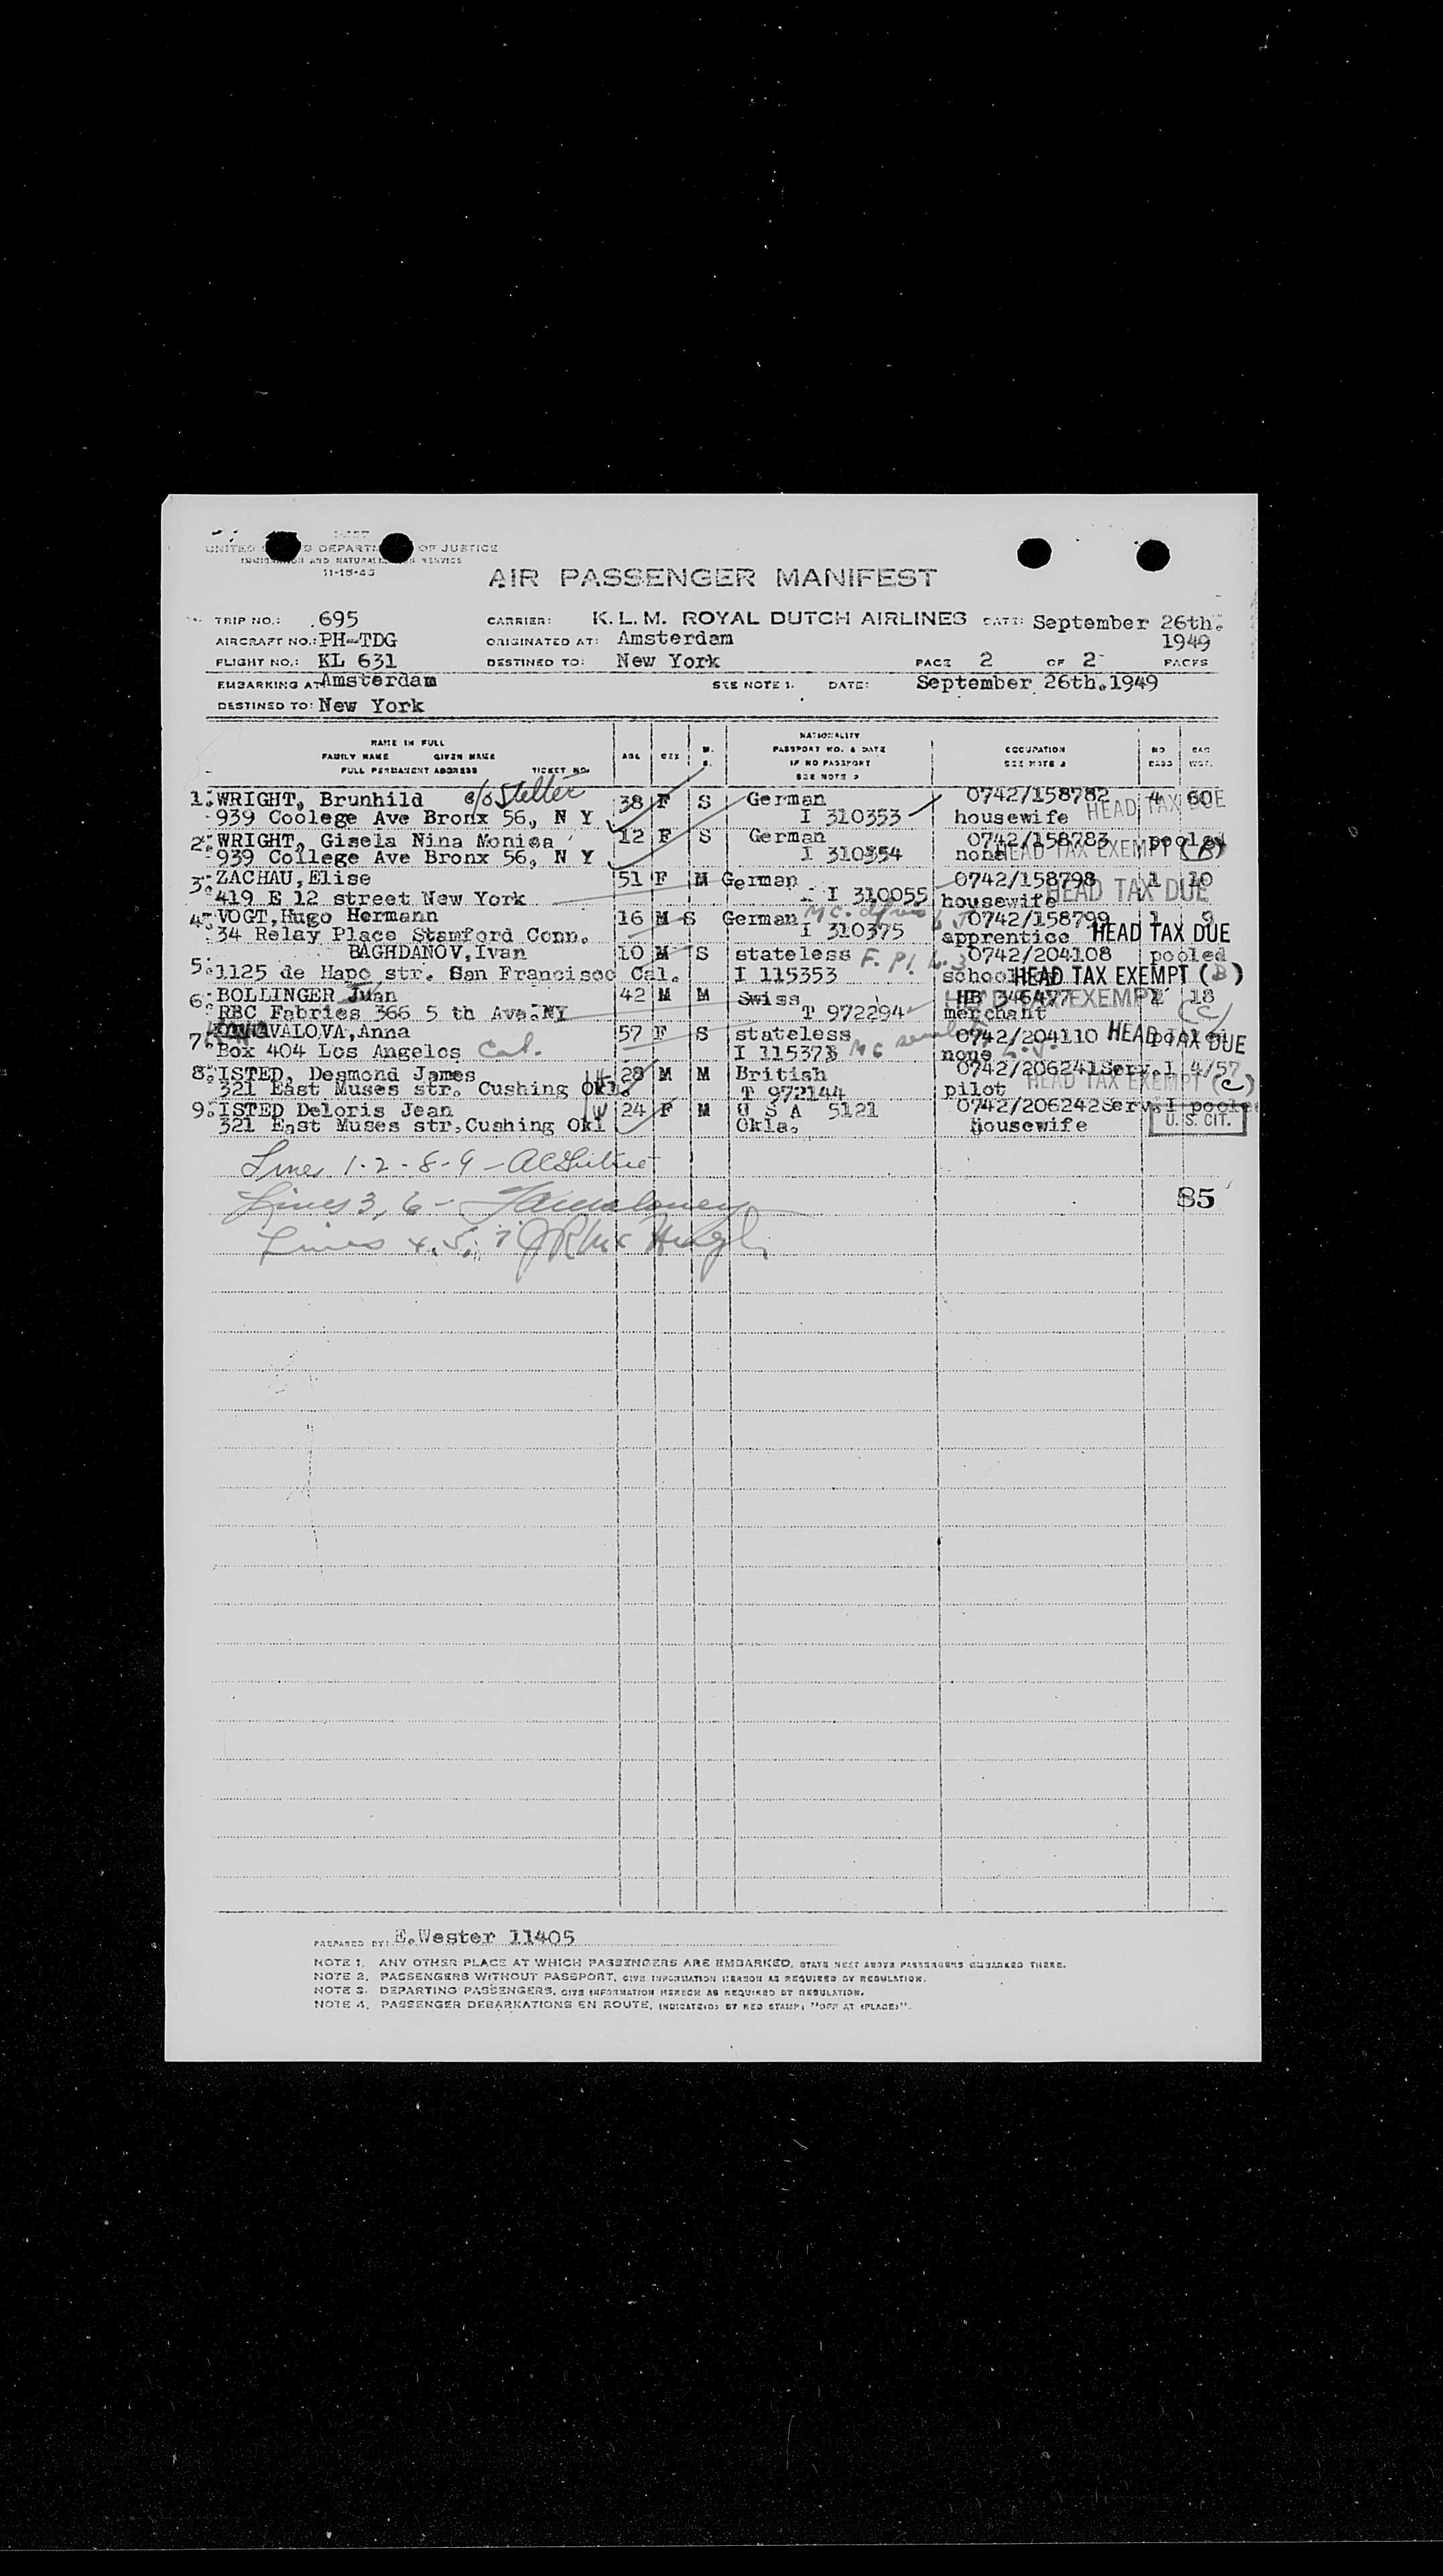 UNITED S DEPARTM OF JUSTICE
IMMIGRATION AND NATURALIZATION SERVICE
11-15-43
AIR PASSENGER MANIFEST
TRIP NO.: 695 CARRIER: K.L.M. ROYAL DUTCH AIRLINES DATE: September 26th.
AIRCRAFT NO.: PH-TDG ORIGINATED AT: Amsterdam 1949
FLIGHT NO.: KL 631 DESTINED TO: New York PAGE 2 OF 2 PAGES
EMBARKING AT Amsterdam SEE NOTE 1. DATE: September 26th.1949
DESTINED TO: New York
NAME IN FULL
FAMILY NAME GIVEN NAME
FULL PERMANENT ADDRESS TICKET NO.
AGE SEX M. S.
NATIONALITY
PASSPORT NO. & DATE
IF NO PASSPORT
SEE NOTE 2
OCCUPATION
SEE NOTE 3
NO BAGS
BAG WGT.
1. WRIGHT, Brunhild c/o Stelter 38 F S German 0742/158782 4 60
939 Coolege Ave Bronx 56, N Y I 310353 housewife HEAD TAX DUE
2. WRIGHT, Gisela Nina Monica 12 F S German 0742/158783 pooled
939 College Ave Bronx 56, N Y I 310354 none HEAD TAX EXEMPT (B)
3. ZACHAU, Elise 51 F M German 0742/158798 1 10
419 E 12 street New York I 310055 housewife HEAD TAX DUE
4. VOGT, Hugo Hermann 16 M S German 0742/158799 1 9
34 Relay Place Stamford Conn. I 310375 apprentice HEAD TAX DUE
5. BAGHDANOV, Ivan 10 M S stateless 0742/204108 pooled
1125 de Hapo str. San Francisco Cal. I 115353 school HEAD TAX EXEMPT (B)
6. BOLLINGER Juan 42 M M Swiss HB 346477 1 18
RBC Fabries 366 5 th Ave.NY T 972294 merchant HEAD TAX EXEMPT (C)
7. VALOVA, Anna 57 F S stateless 0742/204110 pooled
Box 404 Los Angelos Cal. I 11537 none HEAD TAX DUE
8. ISTED, Desmond James 28 M M British 0742/206241Serv.1 4/57
321 East Muses str. Cushing Okl. T 972144 pilot HEAD TAX EXEMPT (C)
9. ISTED Deloris Jean 24 F M U S A 5121 0742/206242Serv.I pooled
321 East Muses str.Cushing Okl Okla. housewife U. S. CIT.
Lines 1-2-8-9 -
Lines 3, 6 -
85
Lines 4, 5, 7 J R Mc Hugh
PREPARED BY: E.Wester 11405
NOTE 1. ANY OTHER PLACE AT WHICH PASSENGERS ARE EMBARKED, STATE NEXT ABOVE PASSENGERS EMBARKED THERE.
NOTE 2. PASSENGERS WITHOUT PASSPORT, GIVE INFORMATION HEREON AS REQUIRED BY REGULATION.
NOTE 3. DEPARTING PASSENGERS, GIVE INFORMATION HEREON AS REQUIRED BY REGULATION.
NOTE 4. PASSENGER DEBARKATIONS EN ROUTE, INDICATE(D) BY RED STAMP: "OFF AT (PLACE)".